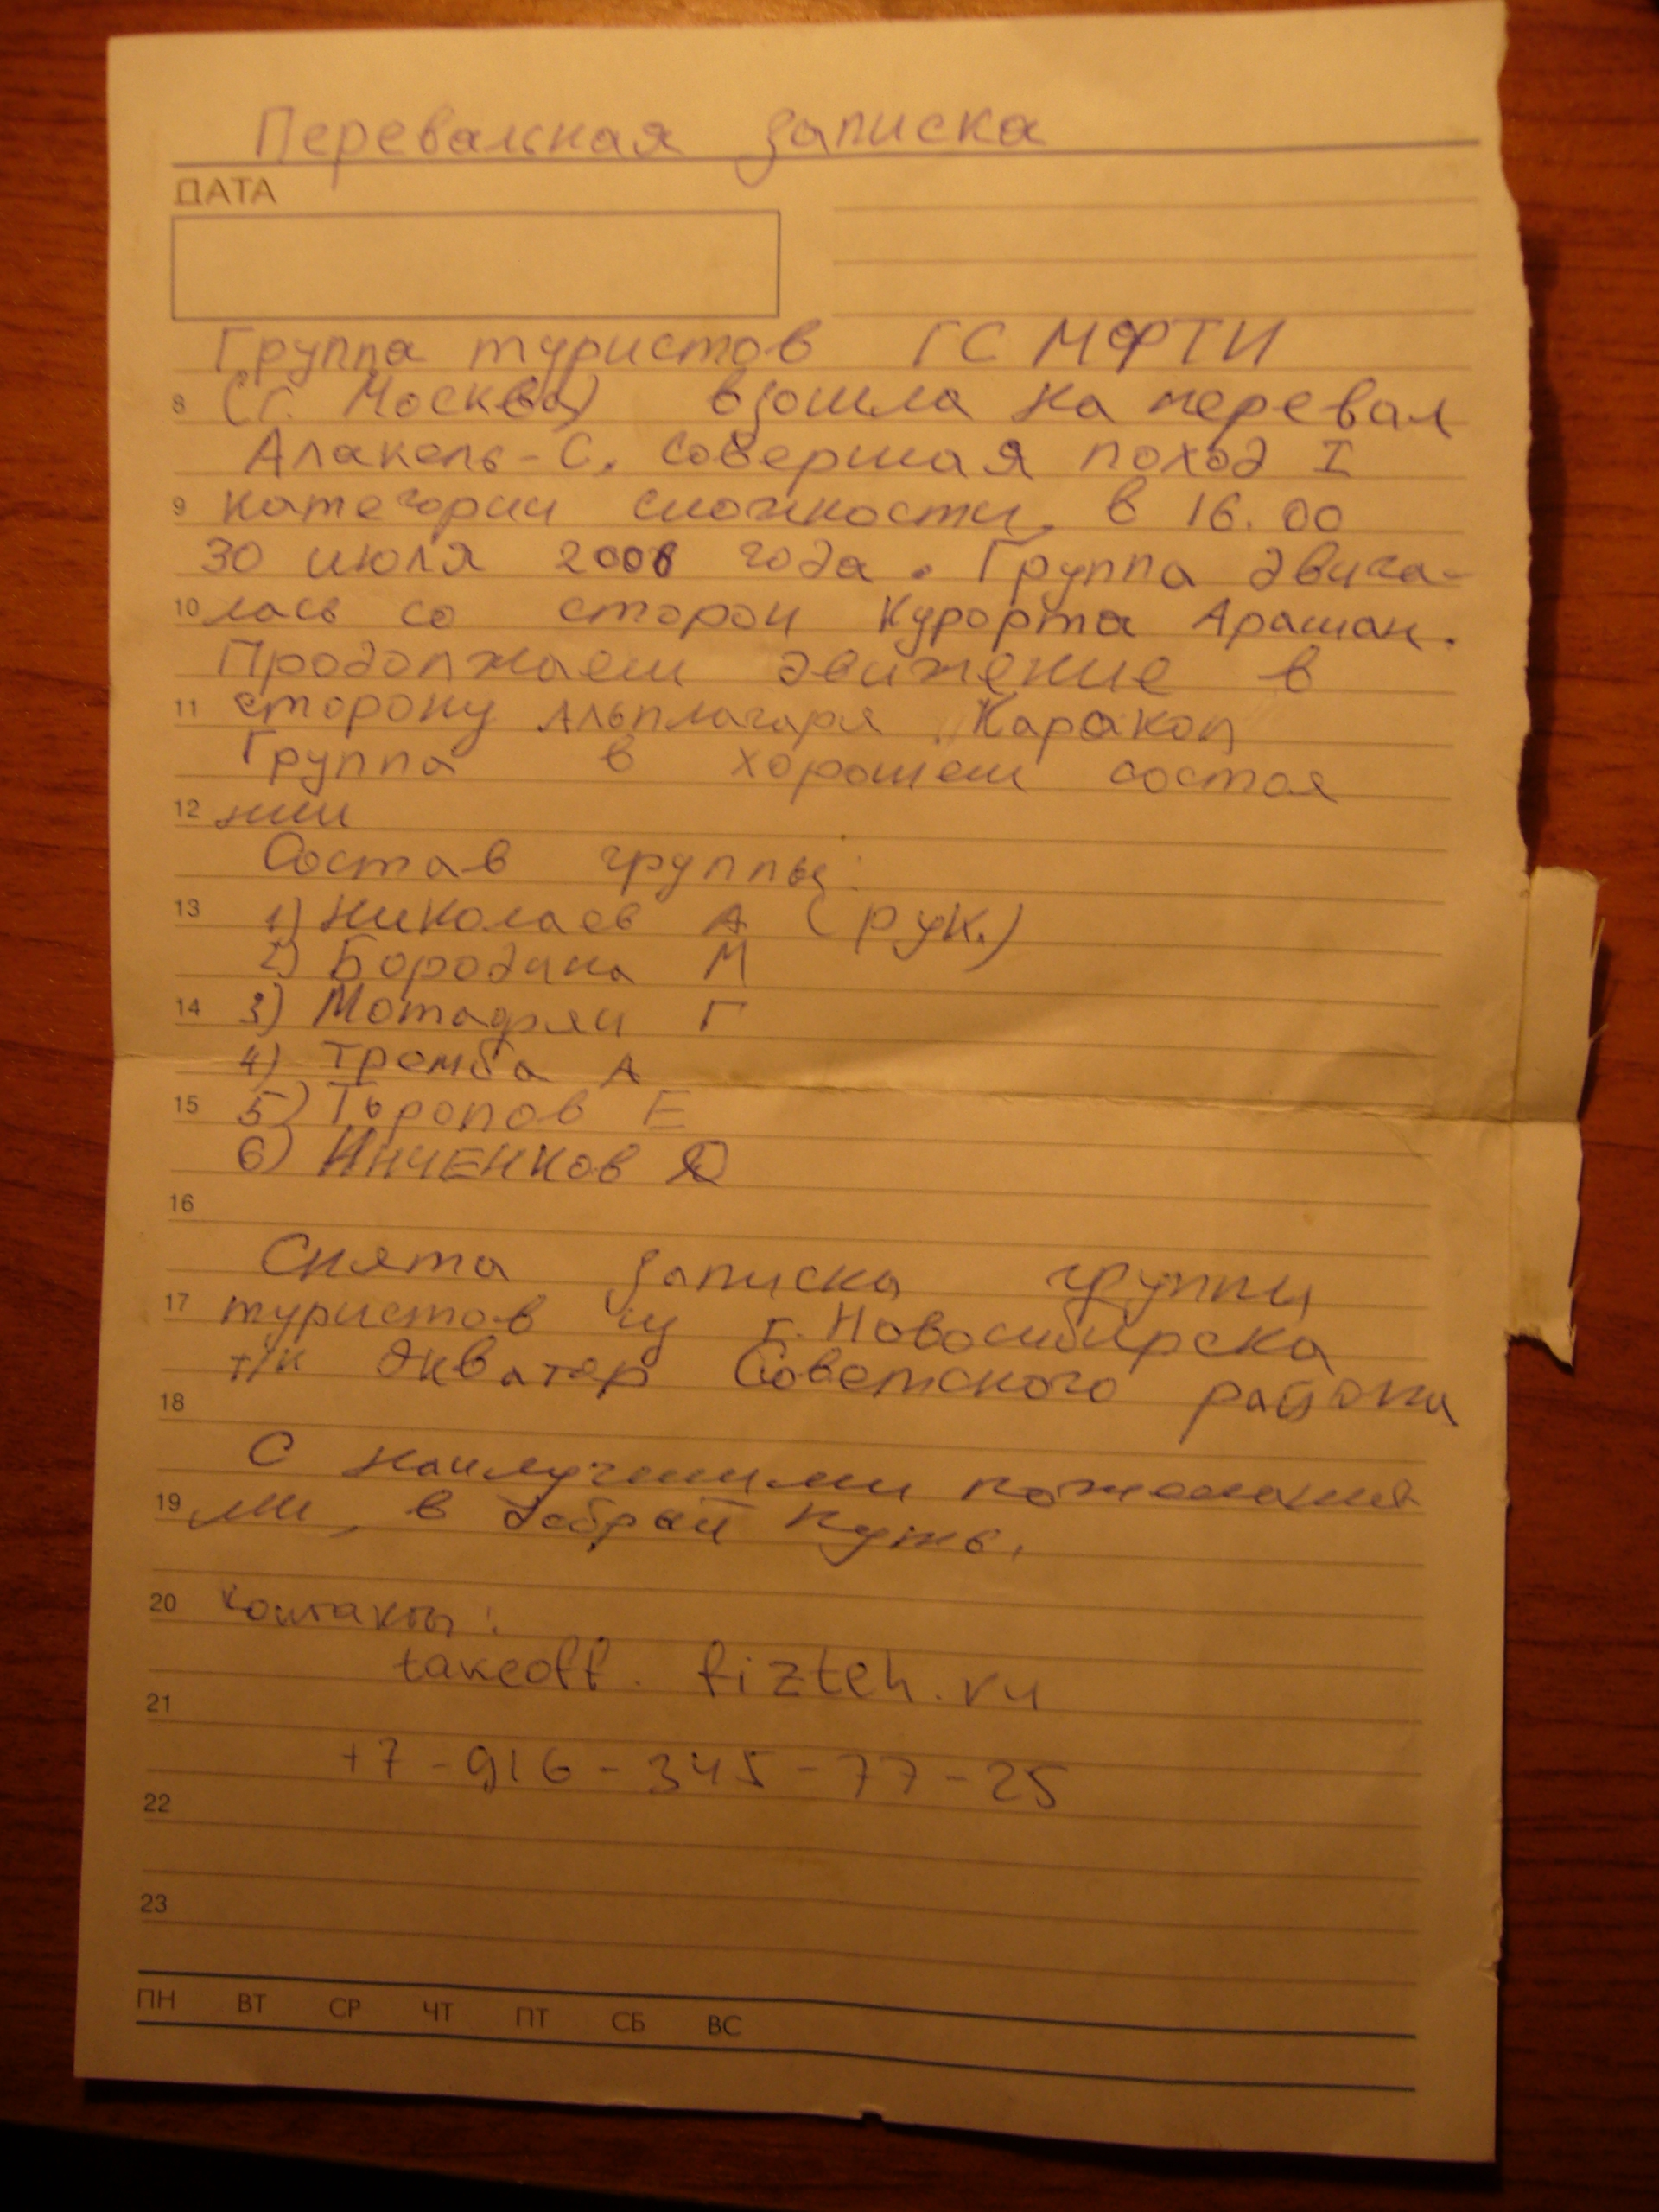 Перевальная записка
ДАТА
Группа туристов ГС МФТИ
8 (г. Москва) взошла на перевал
Алакель-С, совершая поход I
9 категории сложности, в 16.00
30 июля 2008 года. Группа двига-
10 лась со сторон Курорта Арашан.
Продолжаем движение в
11 сторону Альплагеря Каракол
Группа в хорошем состоя
12 нии
Состав группы:
13 1) Николаев А (рук.)
2) Бородина М
14 3) Г
4) Тремба А
15 5) Торопов Е
6) ИНЧЕНКОВ
16
Снята записка группы
17 туристов из г. Новосибирска
т/к Экватор Советского района
18
С наилучшими пожелания
19 ми, в добрый путь.
20 контакты:
takeoff. fizteh.ru
21
+7-916-345-77-25
22
23
ПН ВТ СР ЧТ ПТ СБ ВС